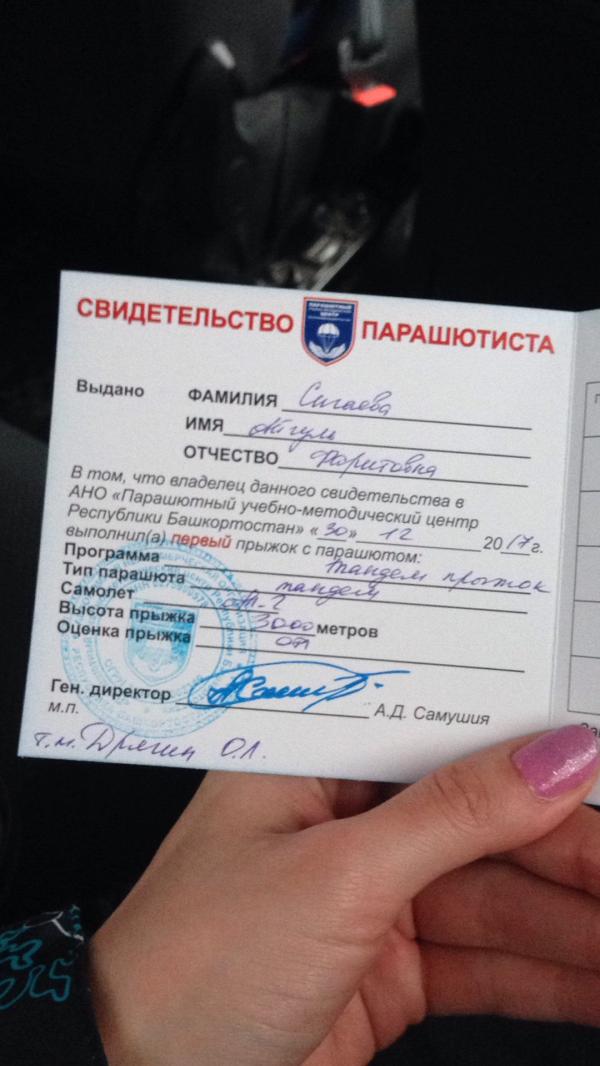 СВИДЕТЕЛЬСТВО ПАРАШЮТИСТА
ПАРАШЮТНЫЙ
ЦЕНТР
Выдано ФАМИЛИЯ Сигаева
ИМЯ Айгуль
ОТЧЕСТВО Фаритовна
В том, что владелец данного свидетельства в
АНО «Парашютный учебно-методический центр
Республики Башкортостан» «30» 12 2017г.
выполнил(а) первый прыжок с парашютом:
Программа тандем прыжок
Тип парашюта тандем
Самолет
Высота прыжка 3000 метров
Оценка прыжка отл
Ген. директор А.Д. Самушия
м.п.
т.м. Дрягин О.Л.